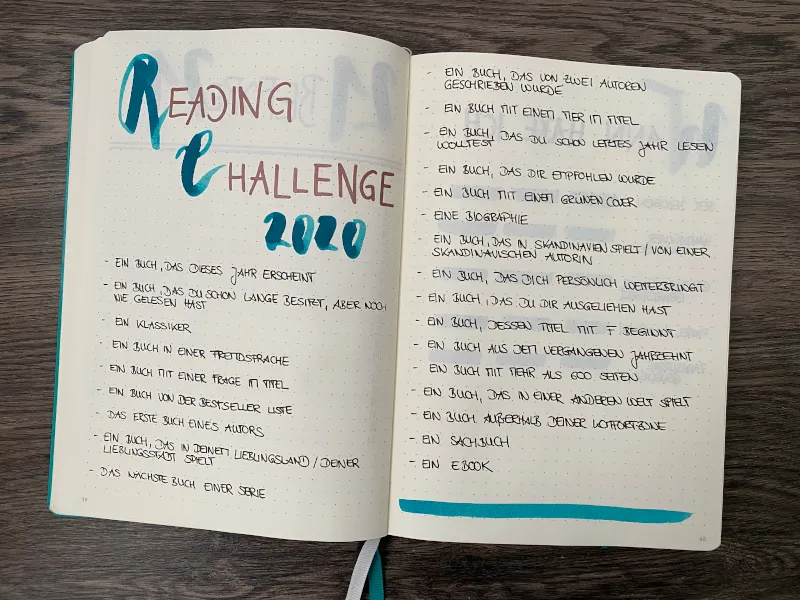 READING
CHALLENGE
2020
- EIN BUCH, DAS DIESES JAHR ERSCHEINT
- EIN BUCH, DAS DU SCHON LANGE BESITZT, ABER NOCH
NIE GELESEN HAST
- EIN KLASSIKER
- EIN BUCH IN EINER FREMDSPRACHE
- EIN BUCH MIT EINER FRAGE IM TITEL
- EIN BUCH VON DER BESTSELLER LISTE
- DAS ERSTE BUCH EINES AUTORS
- EIN BUCH, DAS IN DEINEM LIEBLINGSLAND / DEINER
LIEBLINGSSTADT SPIELT
- DAS NÄCHSTE BUCH EINER SERIE
- EIN BUCH, DAS VON ZWEI AUTOREN
GESCHRIEBEN WURDE
- EIN BUCH MIT EINEM TIER IM TITEL
- EIN BUCH, DAS DU SCHON LETZTES JAHR LESEN
WOLLTEST
- EIN BUCH, DAS DIR EMPFOHLEN WURDE
- EIN BUCH MIT EINEM GRÜNEN COVER
- EINE BIOGRAPHIE
- EIN BUCH, DAS IN SKANDINAVIEN SPIELT / VON EINER
SKANDINAVISCHEN AUTORIN
- EIN BUCH, DAS DICH PERSÖNLICH WEITERBRINGT
- EIN BUCH, DAS DU DIR AUSGELIEHEN HAST
- EIN BUCH, DESSEN TITEL MIT F BEGINNT
- EIN BUCH AUS DEM VERGANGENEN JAHRZEHNT
- EIN BUCH MIT MEHR ALS 600 SEITEN
- EIN BUCH, DAS IN EINER ANDEREN WELT SPIELT
- EIN BUCH AUßERHALB DEINER KOMFORTZONE
- EIN SACHBUCH
- EIN EBOOK